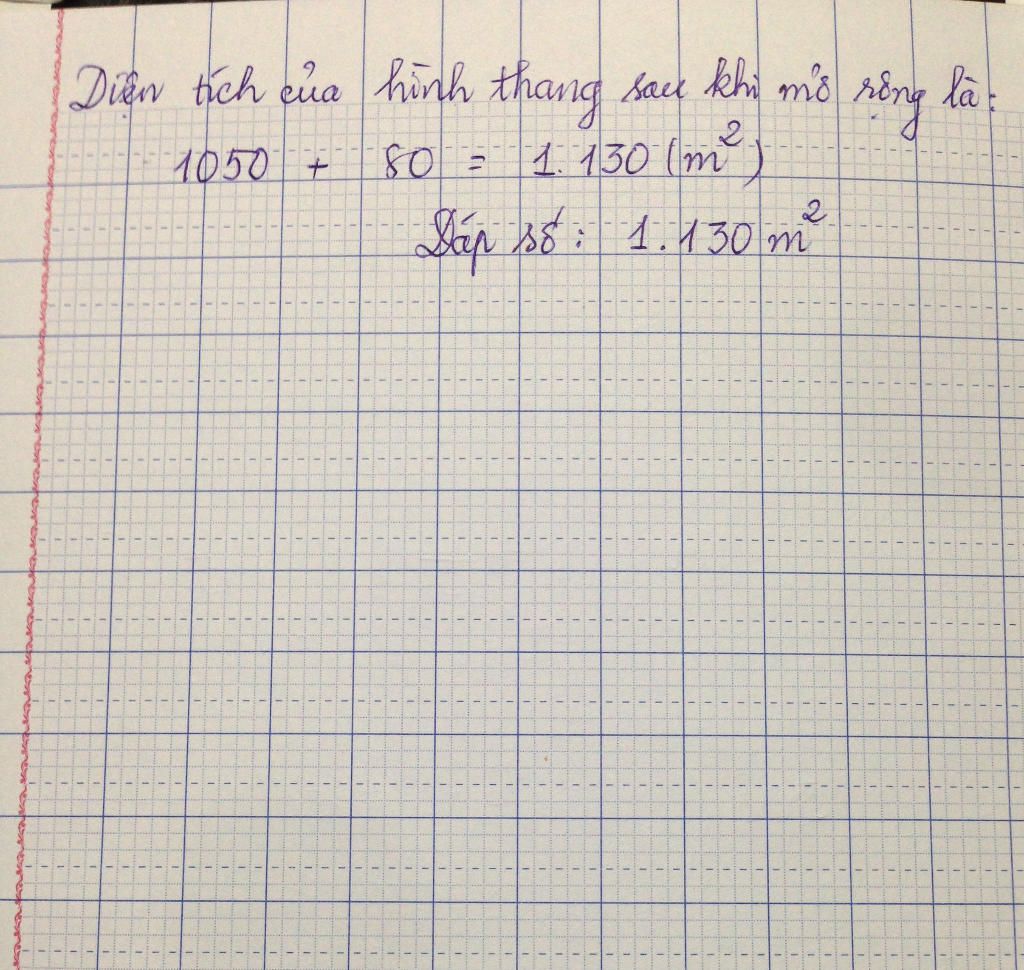 Diện tích của hình thang sau khi mở rộng là:
1050 + 80 = 1.130 (m²)
Đáp số: 1.130 m²